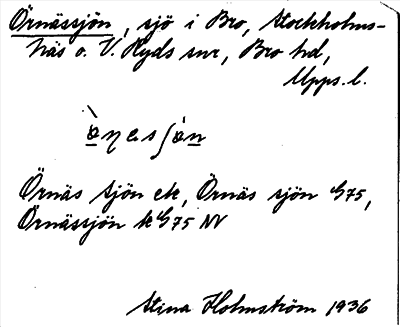 Örnässjön, sjö i Bro, Stockholms-
Näs o. V. Ryds snr, Bro hd,
Upps. l.
Örnäs Sjön ek, Örnäs sjön G75,
Örnässjön k G75 NV
Stina Holmström 1936